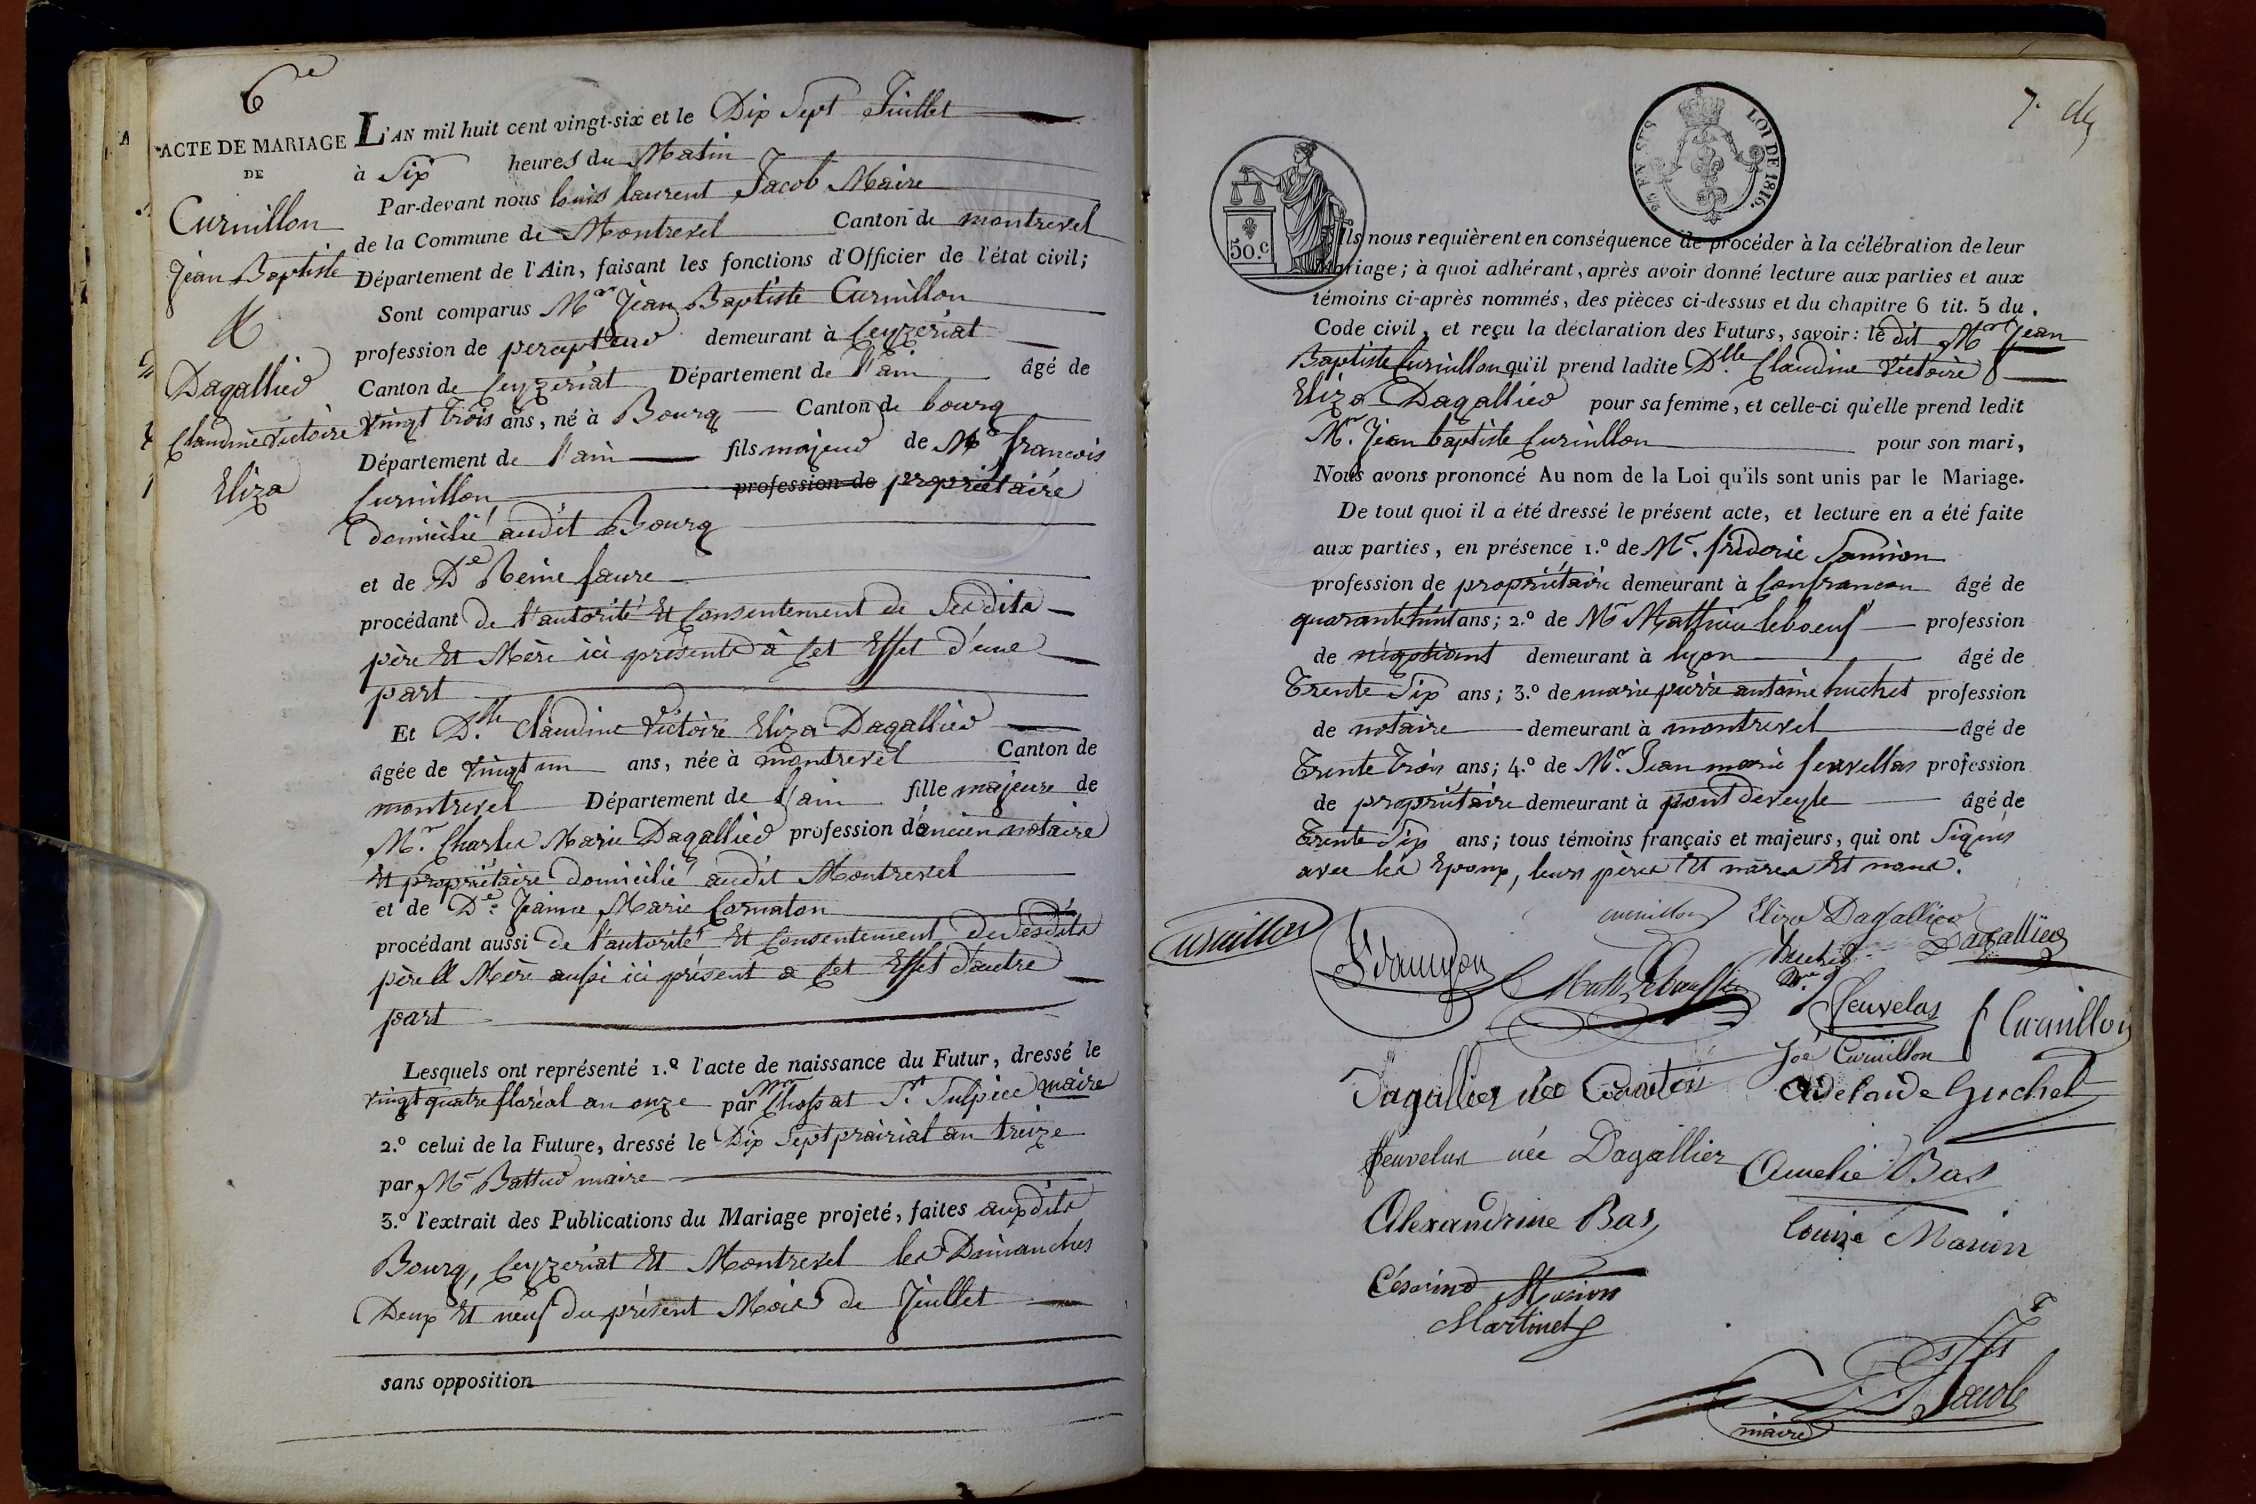 6e
ACTE DE MARIAGE
DE
Curnillon
Jean Baptiste
&
Dagallier
Claudine Victoire
Eliza
L'AN mil huit cent vingt-six et le Dix Sept Juillet
à Six heures du Matin
Par-devant nous Louis laurent Jacob Maire
de la Commune de Montrevel Canton de montrevel
Département de l'Ain, faisant les fonctions d'Officier de l'état civil;
Sont comparus Mr Jean Baptiste Curnillon
profession de percepteur demeurant à Ceyzeriat
Canton de Ceyzeriat Département de l'ain âgé de
vingt trois ans, né à Bourg Canton de bourg
Département de l'ain fils majeur de Mr francois
Curnillon profession de propriétaire
domicilié audit Bourg
et de De Reine faure
procédant de l'autorité Et Consentement de Sesdits
père Et Mère ici présents à Cet Effet d'une
part
Et Dlle Claudine Victoire Eliza Dagallier
âgée de vingt un ans, née à montrevel Canton de
montrevel Département de l'ain fille majeure de
Mr. Charles Marie Dagallier profession d'ancien notaire
Et propriétaire domicilié audit Montrevel
et de De. Jeanne Marie Cornaton
procédant aussi de l'autorité Et Consentement de Sesdits
père Et Mère aussi ici présent a Cet Effet d'autre
part
Lesquels ont représenté 1.º l'acte de naissance du Futur, dressé le
vingt quatre floréal an onze par Mr Chossat St. Sulpice maire
2.º celui de la Future, dressé le Dix Sept prairial an treize
par Mr Battur maire
3.º l'extrait des Publications du Mariage projeté, faites auxdits
Bourg, Ceyzeriat Et Montrevel les Dimanches
Deux Et neuf du présent Mois de Juillet
sans opposition
7.
50.c
LOI DE 1816.
Ils nous requièrent en conséquence de procéder à la célébration de leur
Mariage; à quoi adhérant, après avoir donné lecture aux parties et aux
témoins ci-après nommés, des pièces ci-dessus et du chapitre 6 tit. 5 du
Code civil, et reçu la déclaration des Futurs, savoir: le dit Mr Jean
Baptiste Curnillon qu'il prend ladite Dlle Claudine Victoire
Eliza Dagallier pour sa femme, et celle-ci qu'elle prend ledit
Mr. Jean baptiste Curnillon pour son mari,
Nous avons prononcé Au nom de la Loi qu'ils sont unis par le Mariage.
De tout quoi il a été dressé le présent acte, et lecture en a été faite
aux parties, en présence 1.º de Mr. fréderic
profession de propriétaire demeurant à Confrancon âgé de
quarante huit ans; 2.º de Mr Mathieu leboeuf profession
de négotiant demeurant à lyon âgé de
Trente Six ans; 3.º de marie pierre antoine huchet profession
de notaire demeurant à montrevel âgé de
Trente Trois ans; 4.º de Mr. Jean marie feuvellas profession
de propriétaire demeurant à pont deveyle âgé de
Trente Six ans; tous témoins français et majeurs, qui ont Signés
avec les Epoux, leurs pères Et mères Et nous.
Curnillon
curnillon
Eliza Dagallier
Dagallier
huchet
Feuvelas
f Curnillon
Curnillon
Dagallier née Cornaton
Adelaide Huchet
feuvelas née Dagallier
Amelie Bas
Alexandrine Bas
Louise Marion
Césarine Marion
Martinet
Jacob
maire